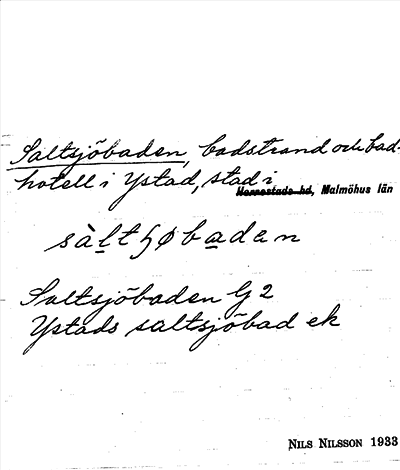 Saltsjöbaden, badstrand och bad-
hotell i Ystad, stad i
Herrestads hd, Malmöhus län
sàltɧøbadan
Saltsjöbaden G2
Ystads saltsjöbad ek
NILS NILSSON 1933